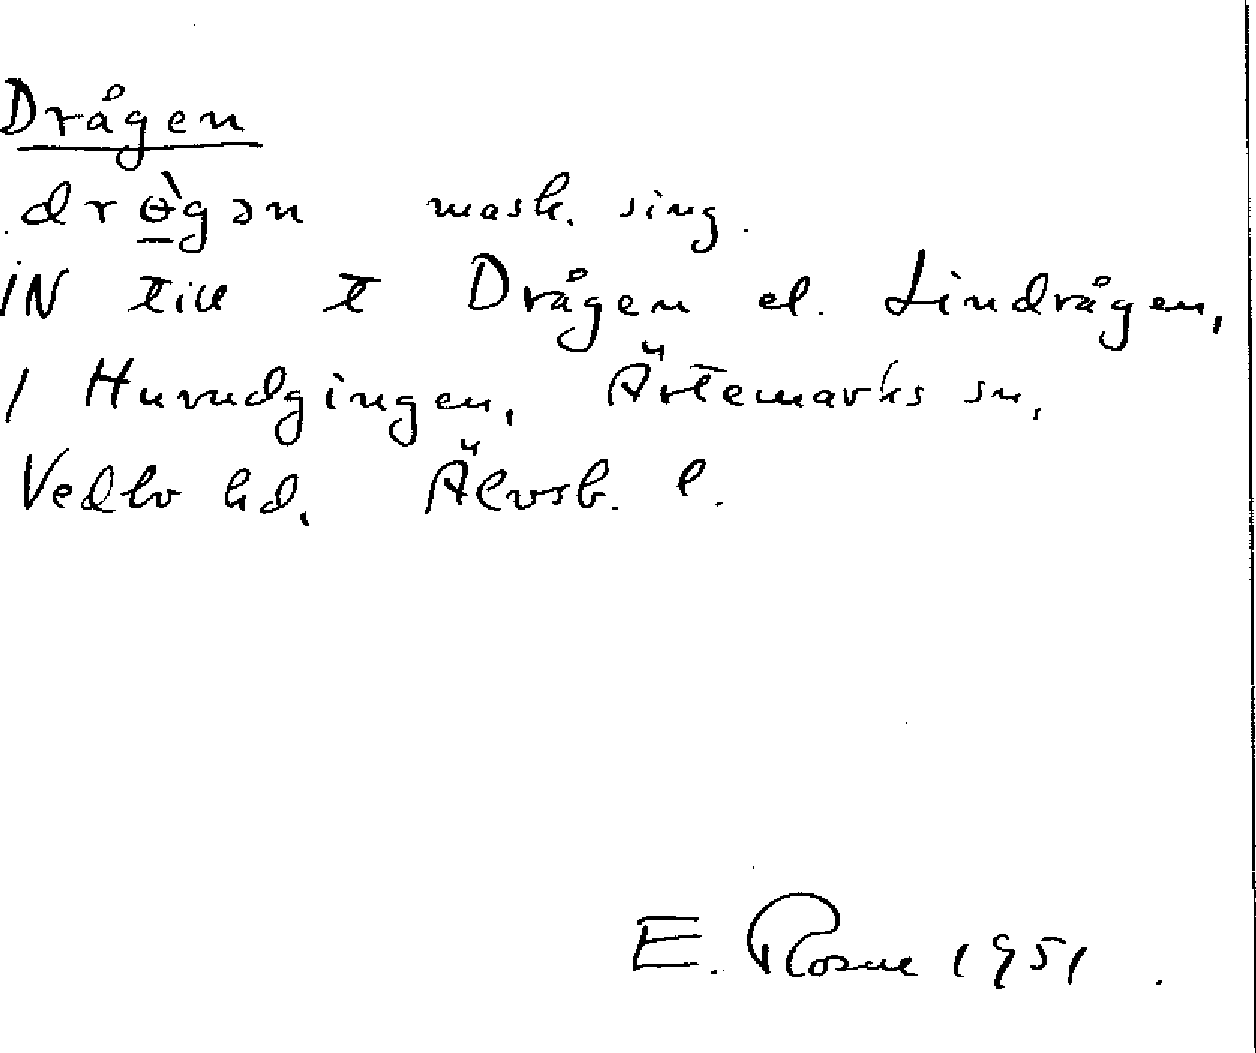 Drågen
drɵ̀gən mask. sing.
IN till t Drågen el. Lindrågen,
i Huvudgingen, Ärtemarks sn,
Vedbo hd. Älvsb. l.
E. Rosne 1951.